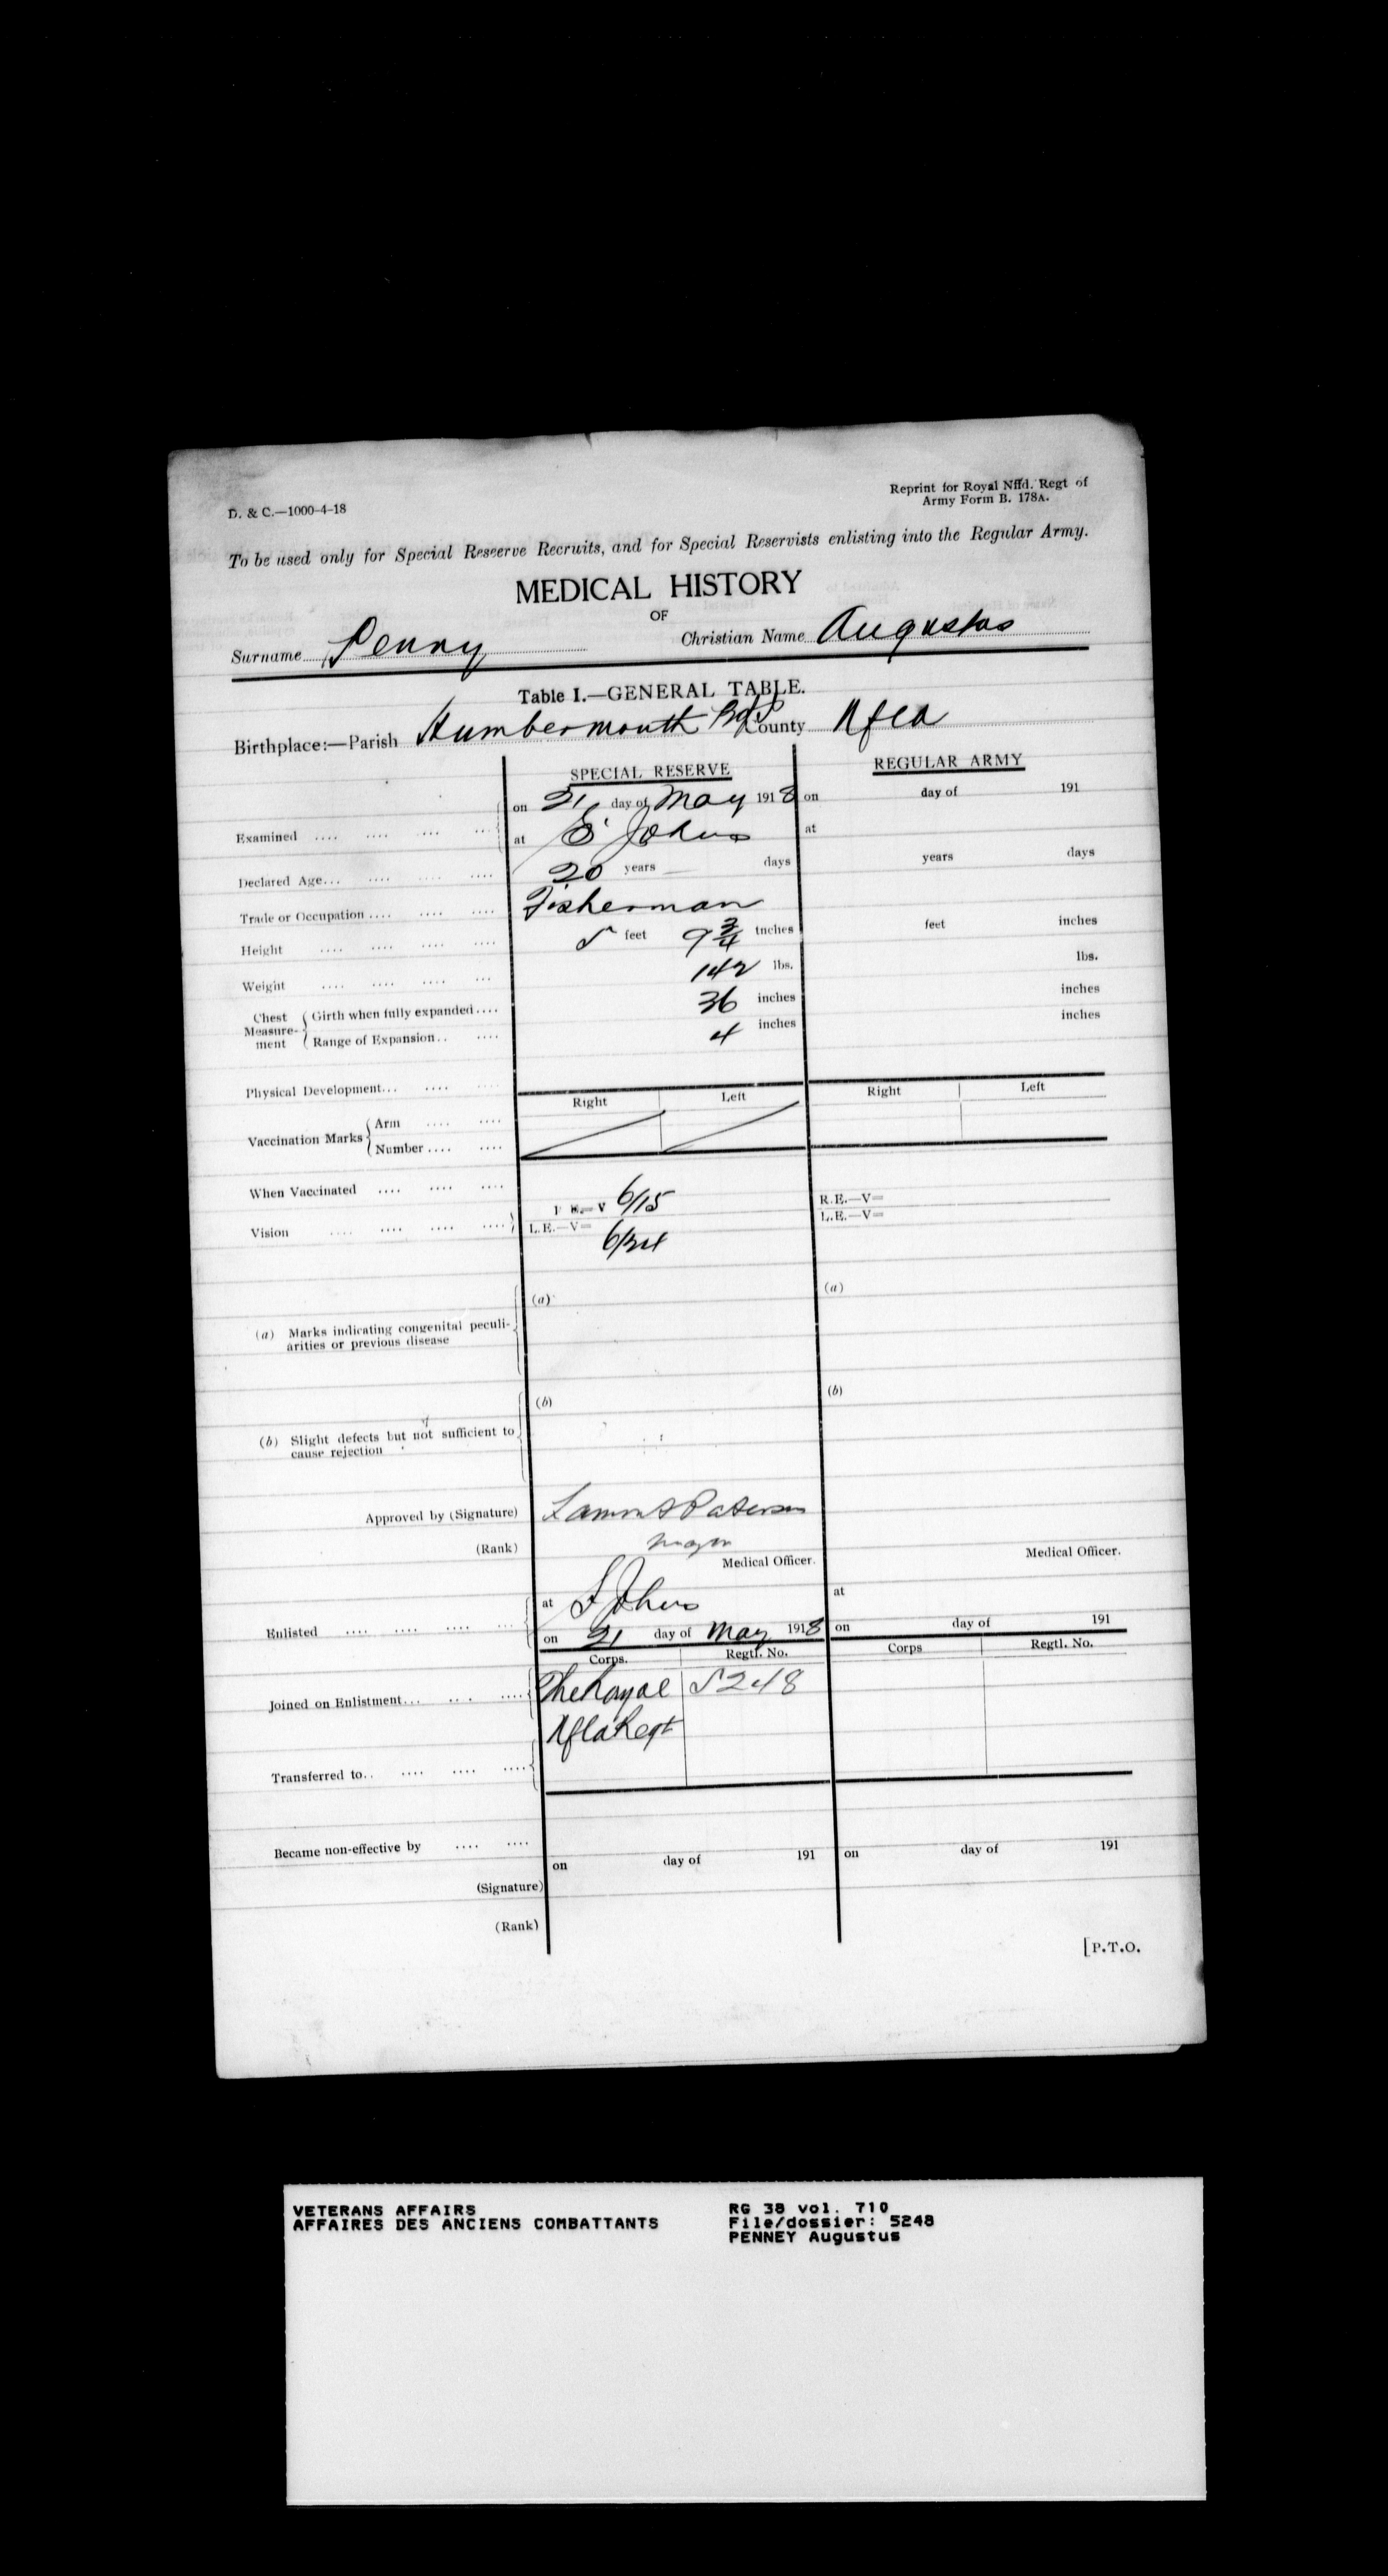 D. & C.—1000-4-18
Reprint for Royal Nffd. Regt of
Army Form B. 178A.
To be used only for Special Reserve Recruits, and for Special Reservists enlisting into the Regular Army.
MEDICAL HISTORY
OF
Surname Penny Christian Name Augustus
Table I.—GENERAL TABLE.
Birthplace:—Parish Humbermouth County Nfld
SPECIAL RESERVE REGULAR ARMY
Examined .... .... .... ... on 21 day of May 1918 on day of 191
at St Johns at
Declared Age... .... .... .... 20 years — days years days
Trade or Occupation .... .... .... Fisherman
Height .... .... .... .... 5 feet 9 3/4 Inches feet inches
Weight .... .... .... ... 142 lbs. lbs.
Chest Measurement { Girth when fully expanded .... 36 inches inches
Range of Expansion.. .... 4 inches inches
Physical Development... .... ....
Right Left Right Left
Vaccination Marks { Arm .... ....
Number .... ....
When Vaccinated .... .... ....
Vision .... .... .... .... R.E.—V 6/15 R.E.—V=
L.E.—V= 6/24 L.E.—V=
(a) Marks indicating congenital peculi-
arities or previous disease
(a) (a)
(b) Slight defects but not sufficient to
cause rejection
(b) (b)
Approved by (Signature) Lamont Paterson
(Rank) Major
Medical Officer. Medical Officer.
Enlisted .... .... .... ... at St Johns at
on 21 day of May 1918 on day of 191
Corps. Regtl. No. Corps Regtl. No.
Joined on Enlistment... .... .... The Royal 5248
Nfld Regt
Transferred to.. .... .... ....
Became non-effective by .... ....
on day of 191 on day of 191
(Signature)
(Rank)
[P.T.O.
VETERANS AFFAIRS
AFFAIRES DES ANCIENS COMBATTANTS
RG 38 vol. 710
File/dossier: 5248
PENNEY Augustus